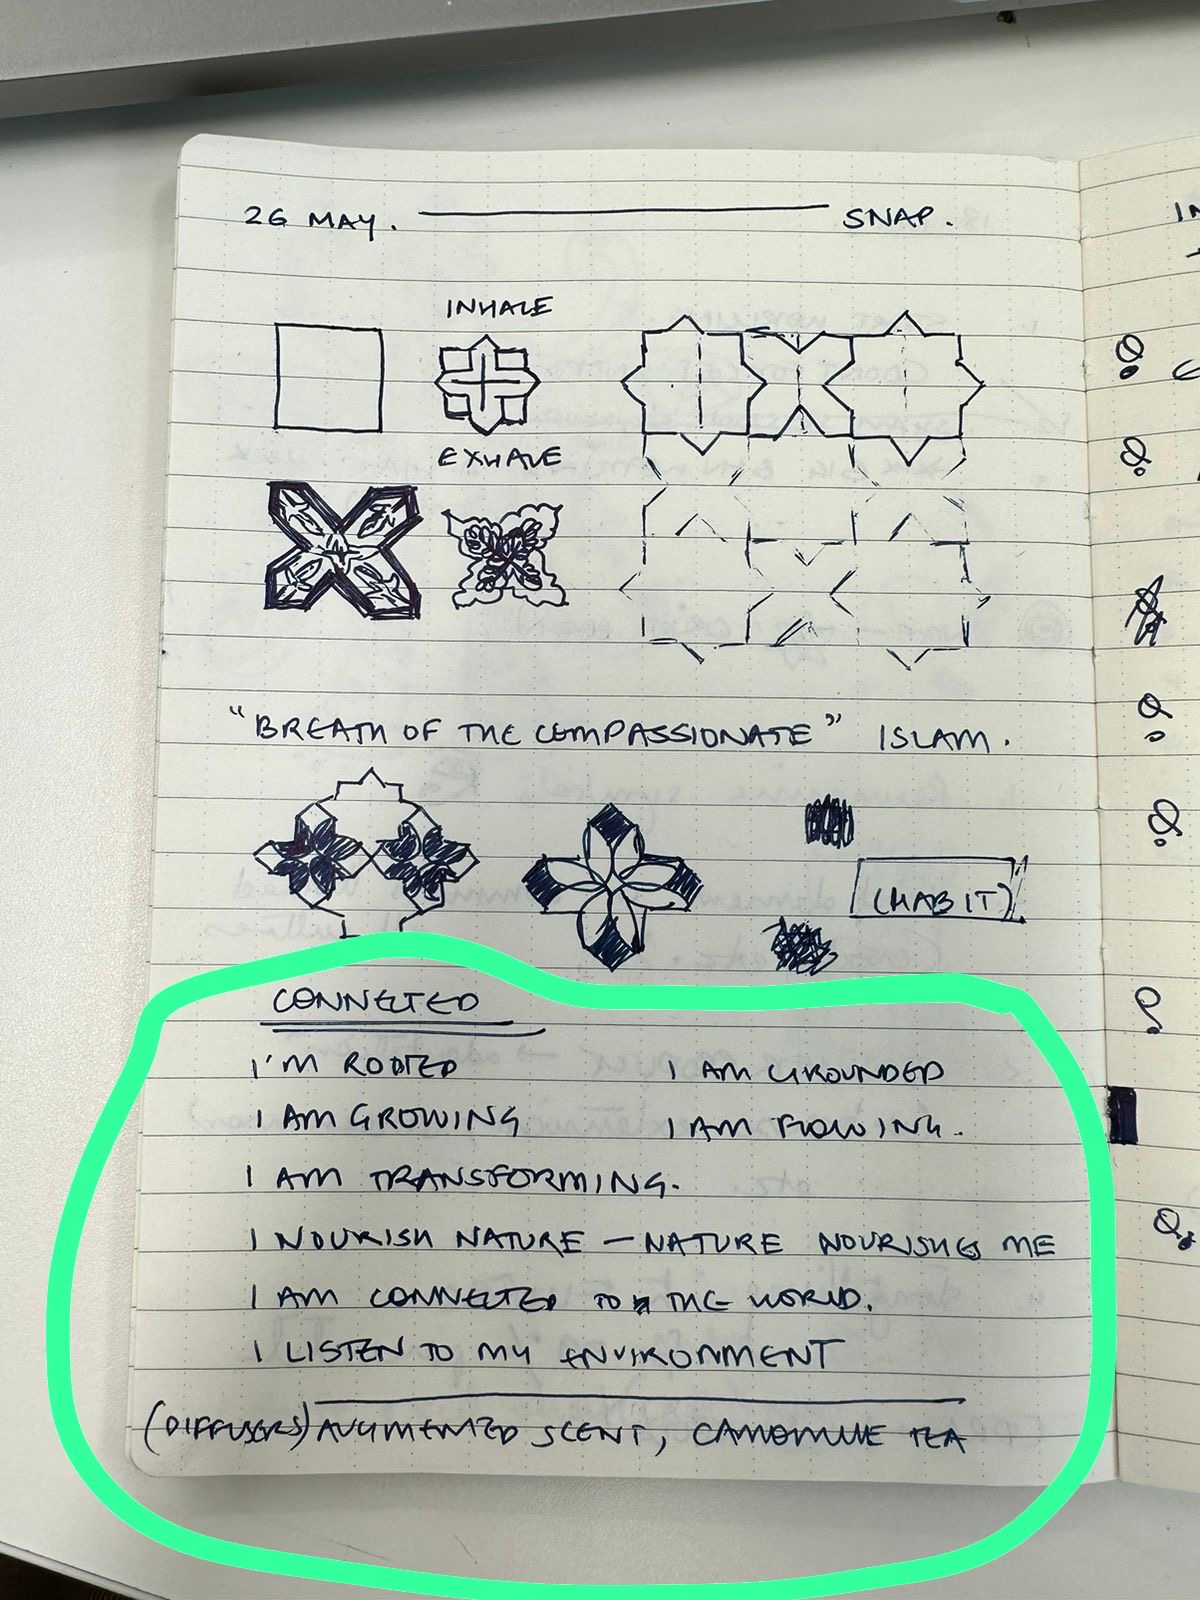 26 MAY. SNAP.
INHALE
EXHALE
"BREATH OF THE COMPASSIONATE" ISLAM.
(HABIT)
CONNECTED
I'M ROOTED I AM GROUNDED
I AM GROWING I AM FLOWING.
I AM TRANSFORMING.
I NOURISH NATURE – NATURE NOURISHES ME
I AM CONNECTED TO THE WORLD.
I LISTEN TO MY ENVIRONMENT
(DIFFUSERS) AUGMENTED SCENT, CAMOMILE TEA